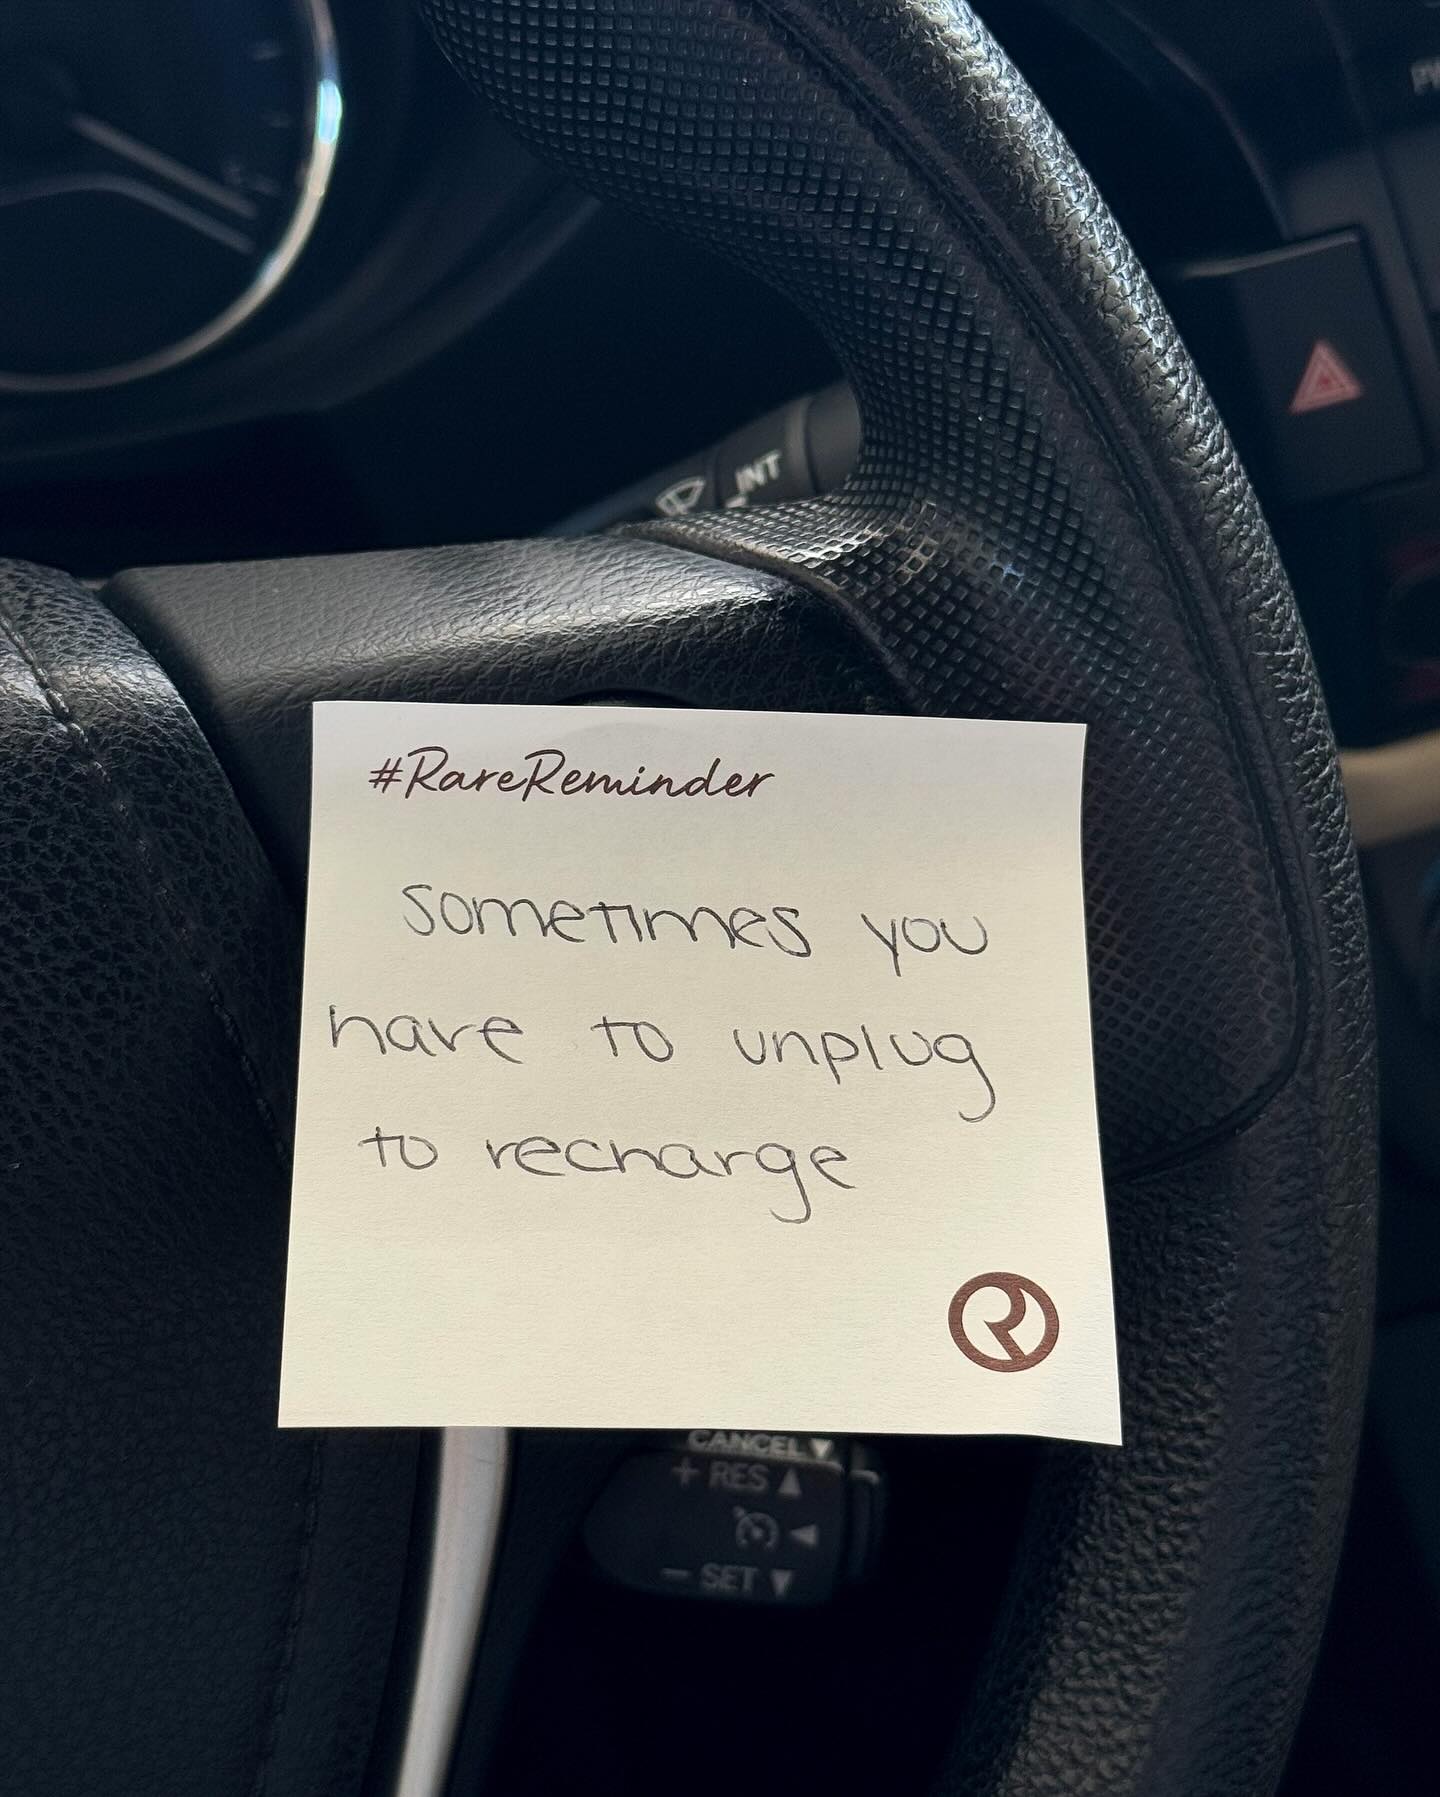 INT
#RareReminder
sometimes you
have to unplug
to recharge
R
CANCEL ▼
+ RES ▲
◀
− SET ▼